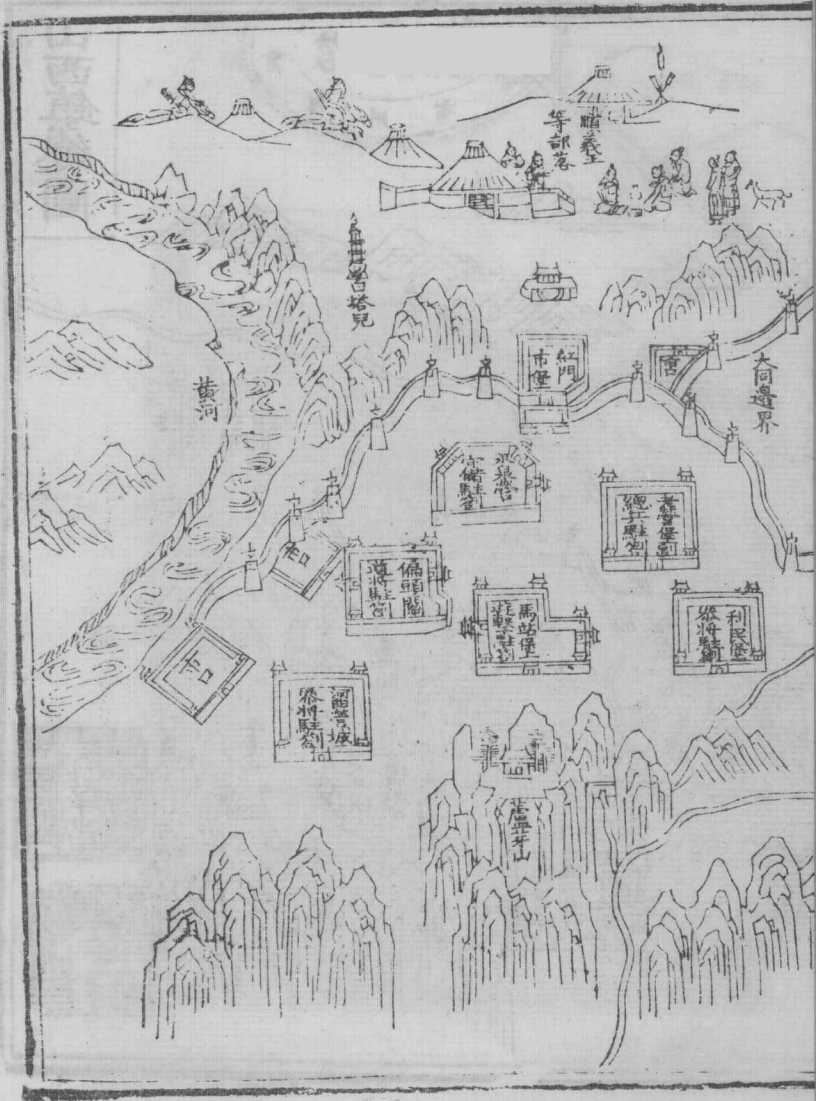 順義王
等部落
塔兒
大同邊界
紅門
市堡
黃河
水泉營
守備駐劄
老營堡副
總兵駐劄
偏頭關
將駐劄
馬站堡
遊擊駐劄
利民堡
參將駐劄
河曲營城
參將駐劄
蘆芽山